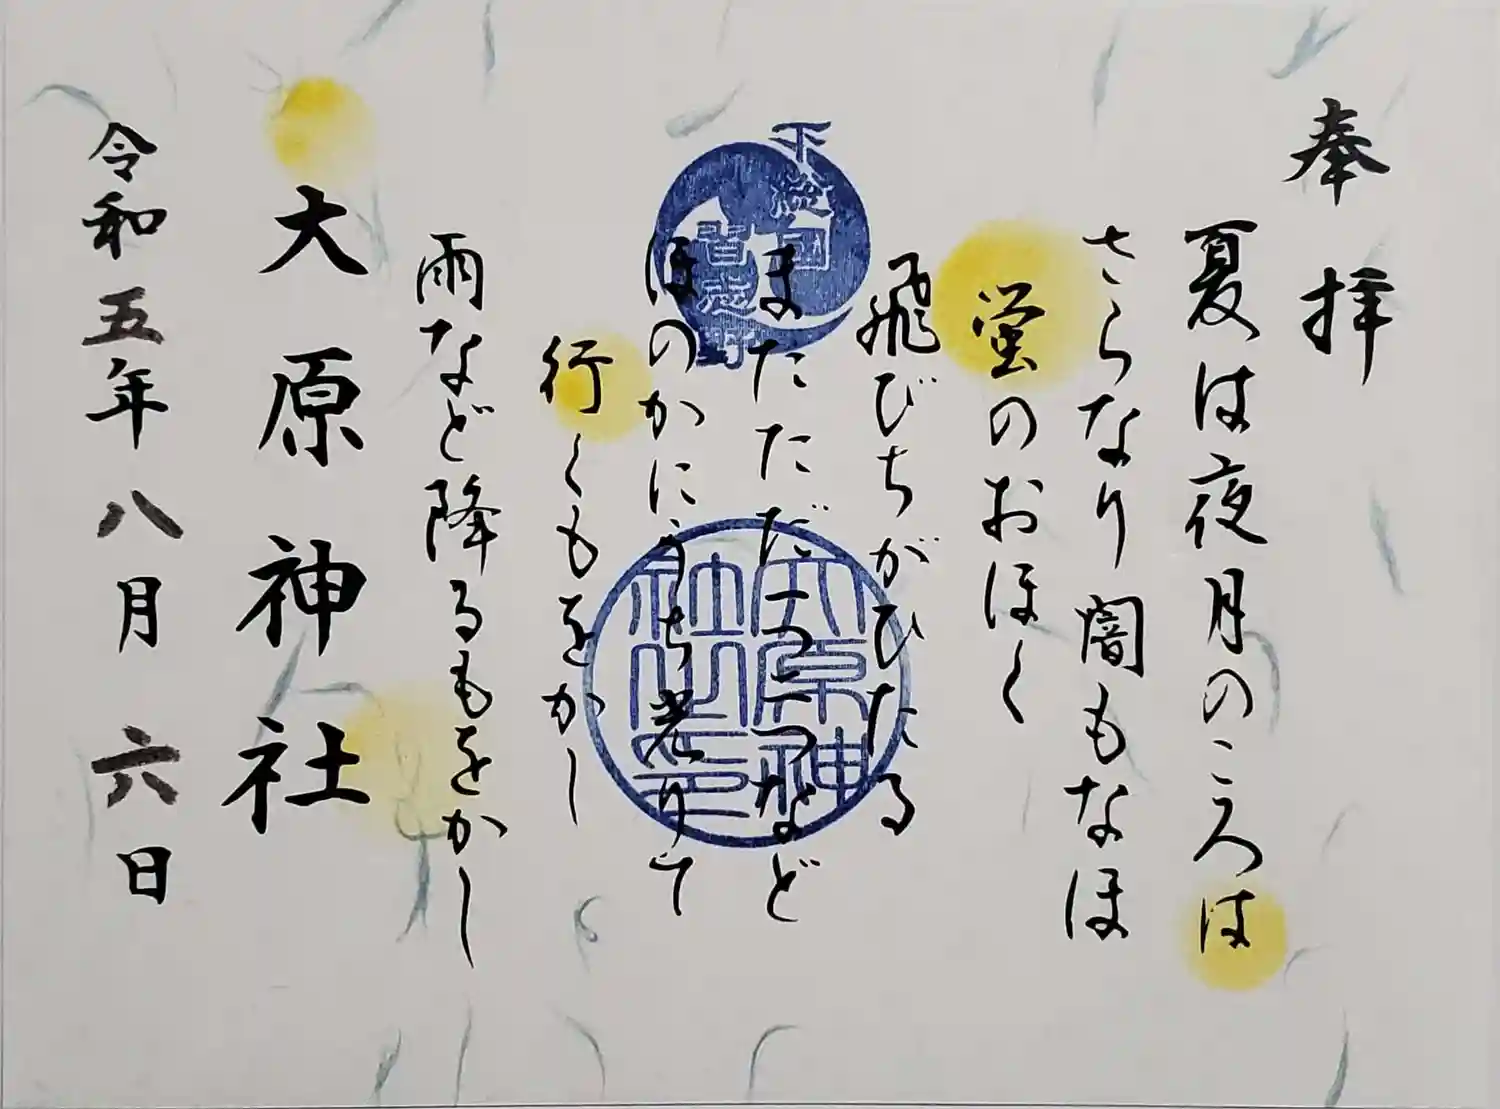 奉拝
夏は夜月のころは
さらなり闇もなほ
蛍のおほく
飛びちがひたる
まただだ一つ二つなど
ほのかにうち光りて
行くもをかし
雨など降るもをかし
大原神社
令和五年八月六日
下総国
習志野
大原神
社之印